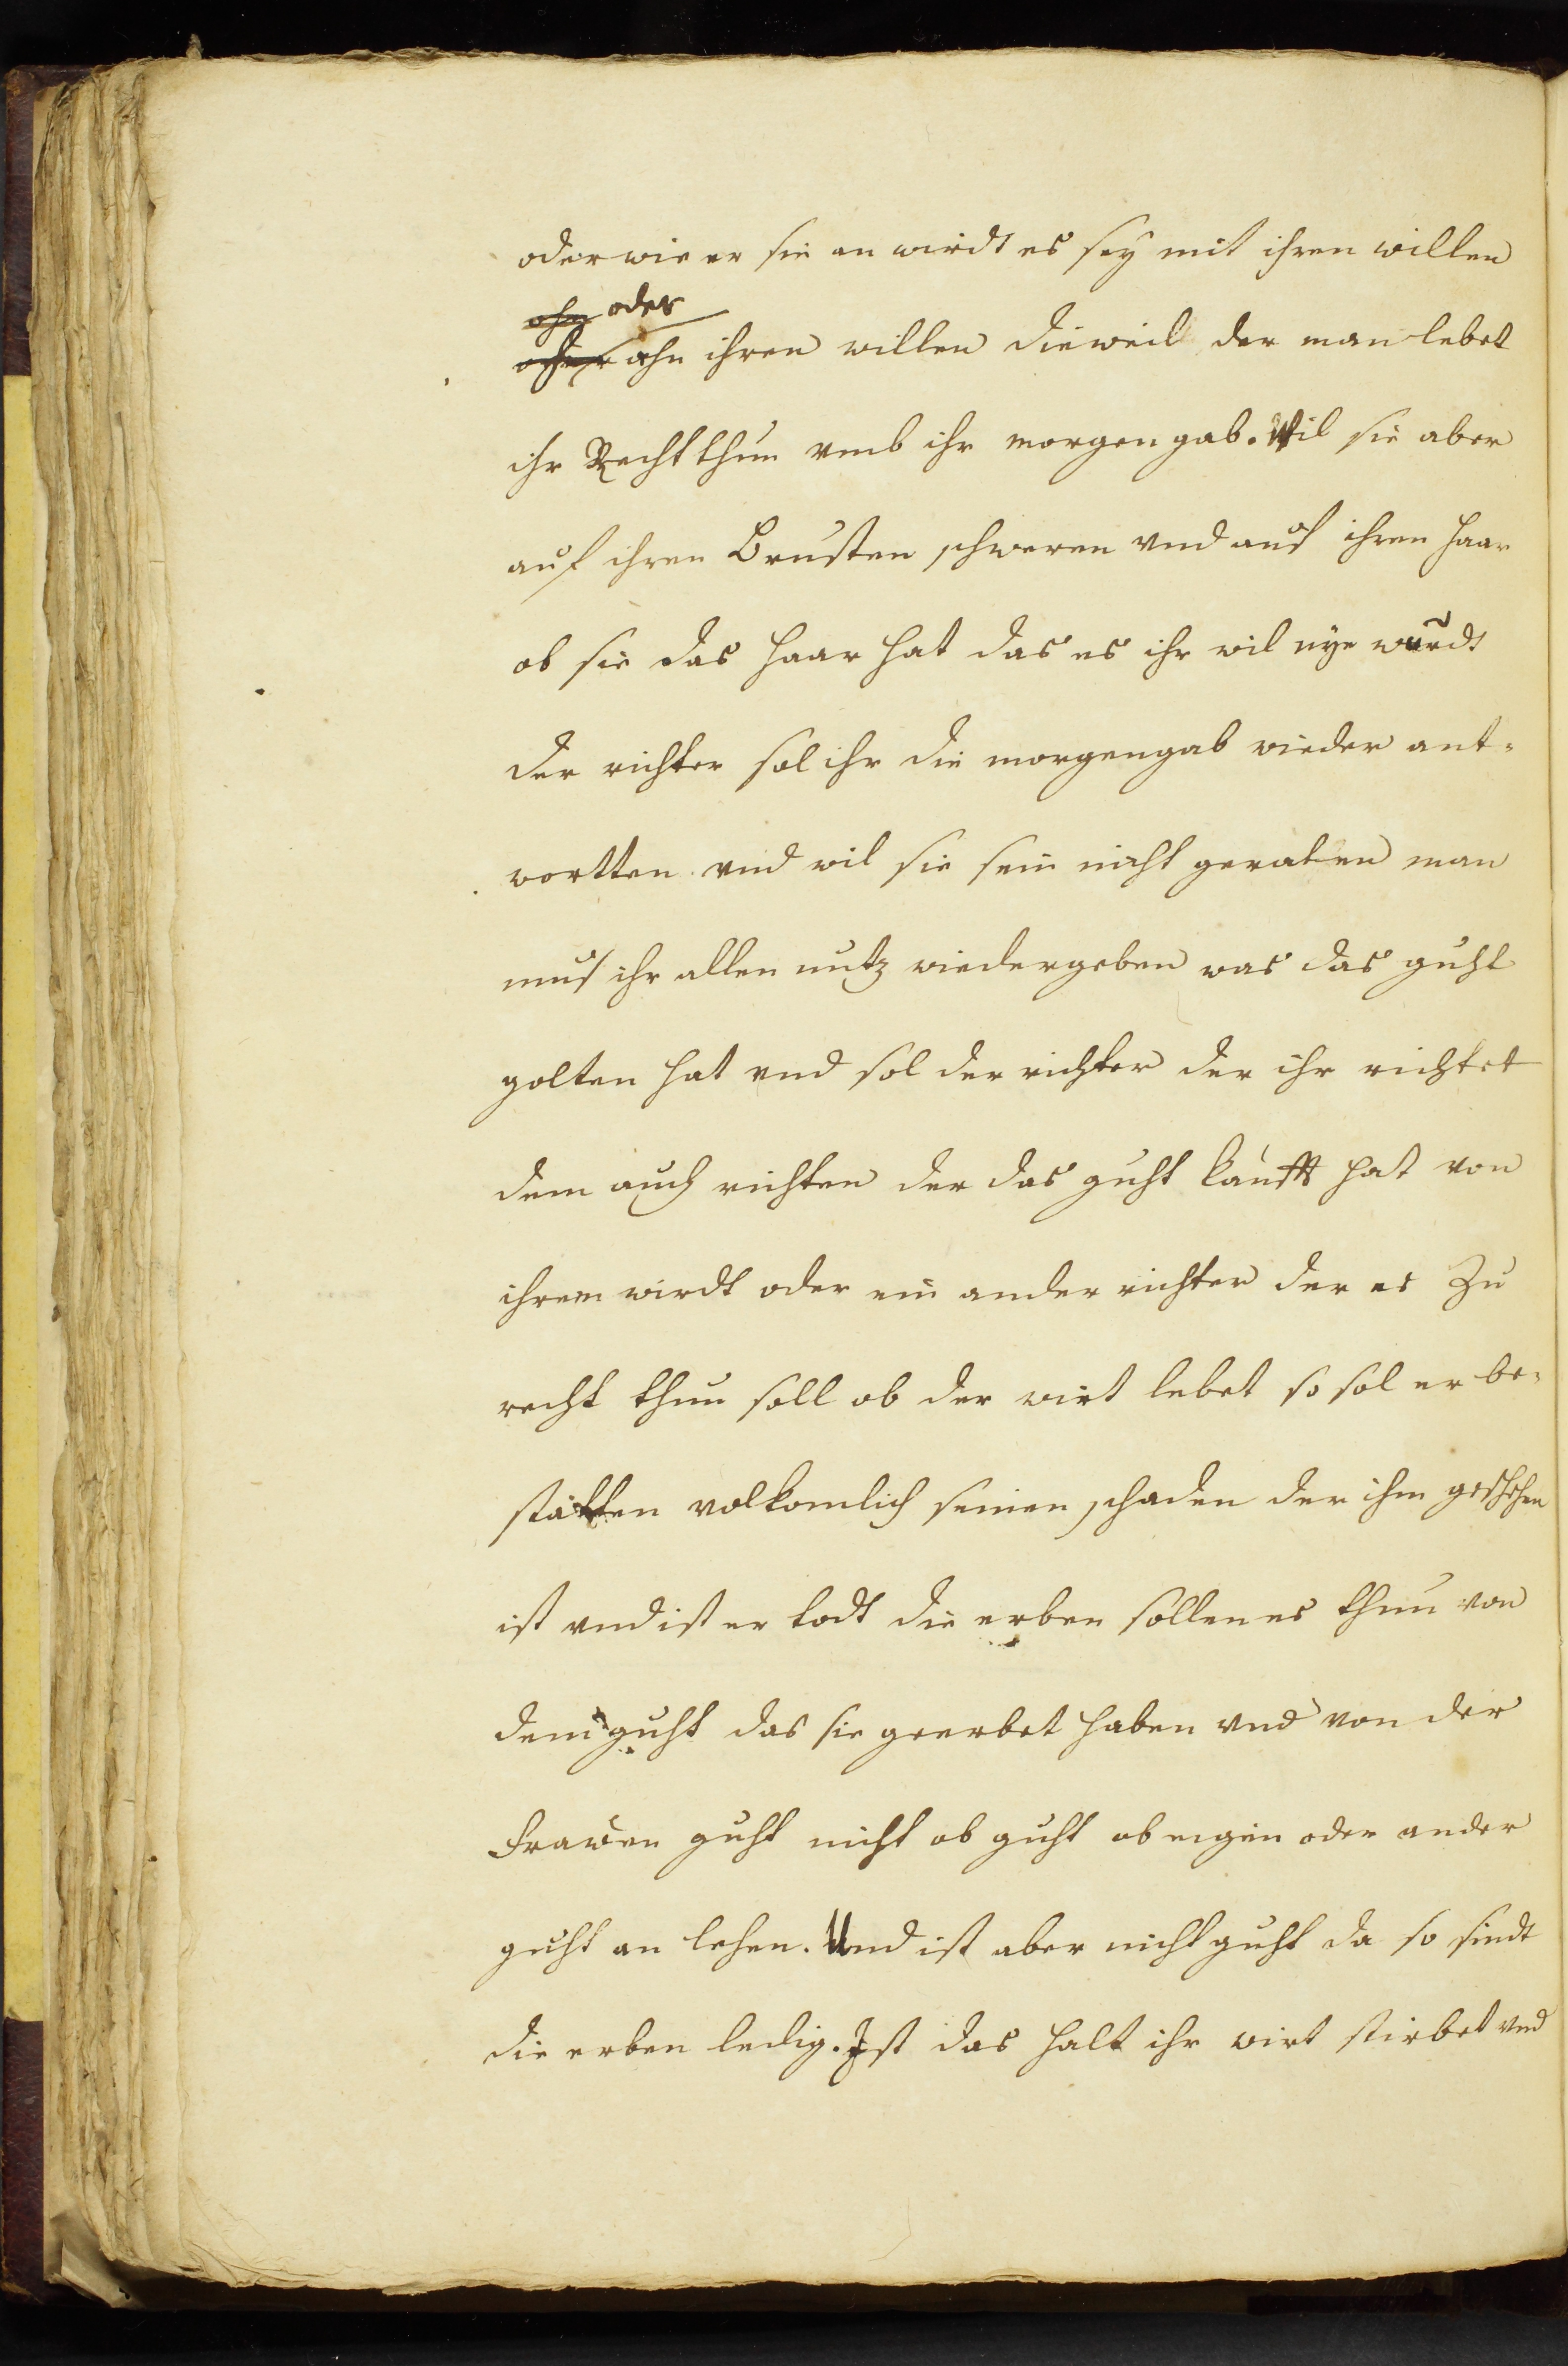 oder wie er sie an wirdt es sey mit ihren willen
ohn oder
ohn ihren willen dieweil der man lebet
ihr Recht thun vmb ihr morgengab. Wil sie aber
auf ihren Brusten schweren vnd auf ihren haar
ob sie das haar hat das es ihr wil nye wurdt
der richter sol ihr die morgengab wieder ant=
wortten vnd wil sie sein nicht geraten man
mus ihr allen nutz wiedergeben was das guht
golten hat vnd sol der richter der ihr richtet
dem auch richten der das guht kaufft hat von
ihrem wirdt oder ein ander richter der es zu
recht thun soll ob der wirt lebet so sol er be=
stätten volkomlich seinen schaden der ihm geschehen
ist vnd ist er todt die erben sollen es thun von
dem guht das sie geerbet haben vnd von der
frawen guht nicht ob guht ob eigen oder ander
guht an lehen. Und ist aber nicht guht da so sindt
die erben ledig. Ist das halt ihr wirt stirbet vnd